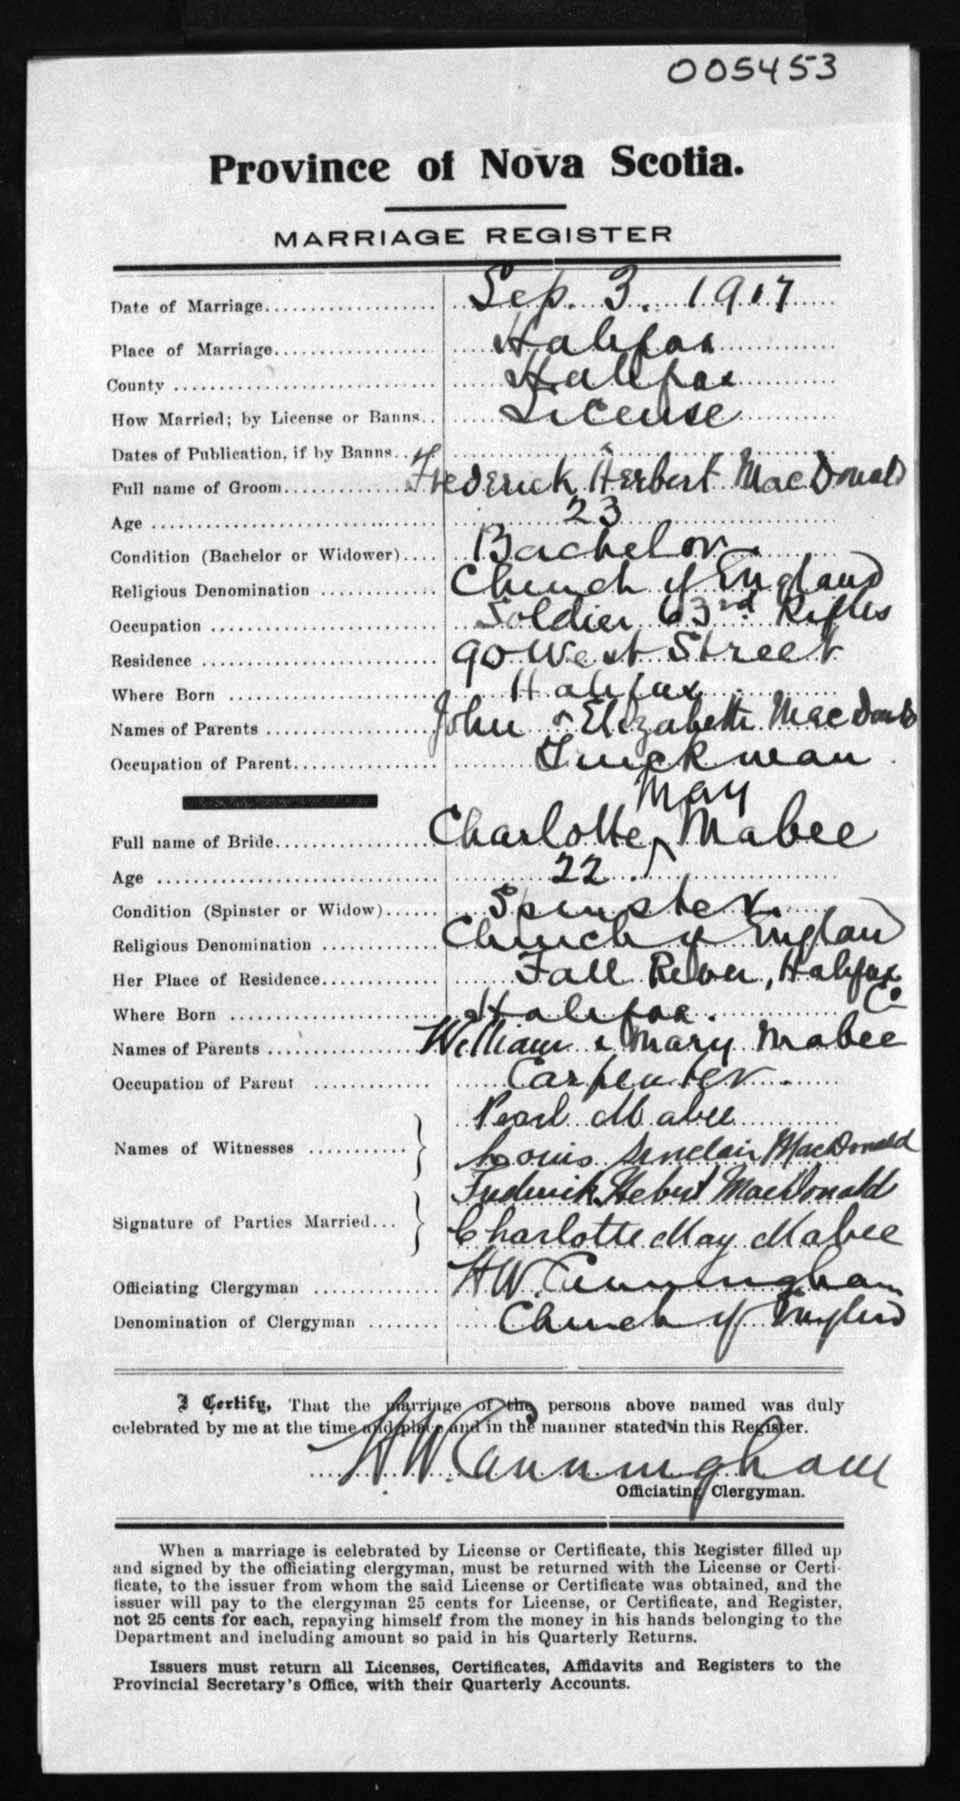 005453
Province of Nova Scotia.
MARRIAGE REGISTER
Date of Marriage Sep. 3. 1917
Place of Marriage Halifax
County Halifax
How Married; by License or Banns License
Dates of Publication, if by Banns
Full name of Groom Frederick Herbert MacDonald
Age 23
Condition (Bachelor or Widower) Bachelor
Religious Denomination Church of England
Occupation Soldier 63rd Rifles
Residence 90 West Street
Where Born Halifax
Names of Parents John & Elizabeth MacDonald
Occupation of Parent Truckman
May
Full name of Bride Charlotte Mabee
Age 22
Condition (Spinster or Widow) Spinster
Religious Denomination Church of England
Her Place of Residence Fall River, Halifax
Co
Where Born Halifax.
Names of Parents William & Mary Mabee
Occupation of Parent Carpenter
Pearl Mabee
Names of Witnesses Louis Sinclair MacDonald
Frederick Hebert MacDonald
Signature of Parties Married Charlotte May Mabee
Officiating Clergyman H W. Cunningham
Denomination of Clergyman Church of England
I Certify, That the marriage of the persons above named was duly
celebrated by me at the time and place and in the manner stated in this Register.
H W Cunningham
Officiating Clergyman.
When a marriage is celebrated by License or Certificate, this Register filled up
and signed by the officiating clergyman, must be returned with the License or Certi-
ficate, to the issuer from whom the said License or Certificate was obtained, and the
issuer will pay to the clergyman 25 cents for License, or Certificate, and Register,
not 25 cents for each, repaying himself from the money in his hands belonging to the
Department and including amount so paid in his Quarterly Returns.
Issuers must return all Licenses, Certificates, Affidavits and Registers to the
Provincial Secretary's Office, with their Quarterly Accounts.